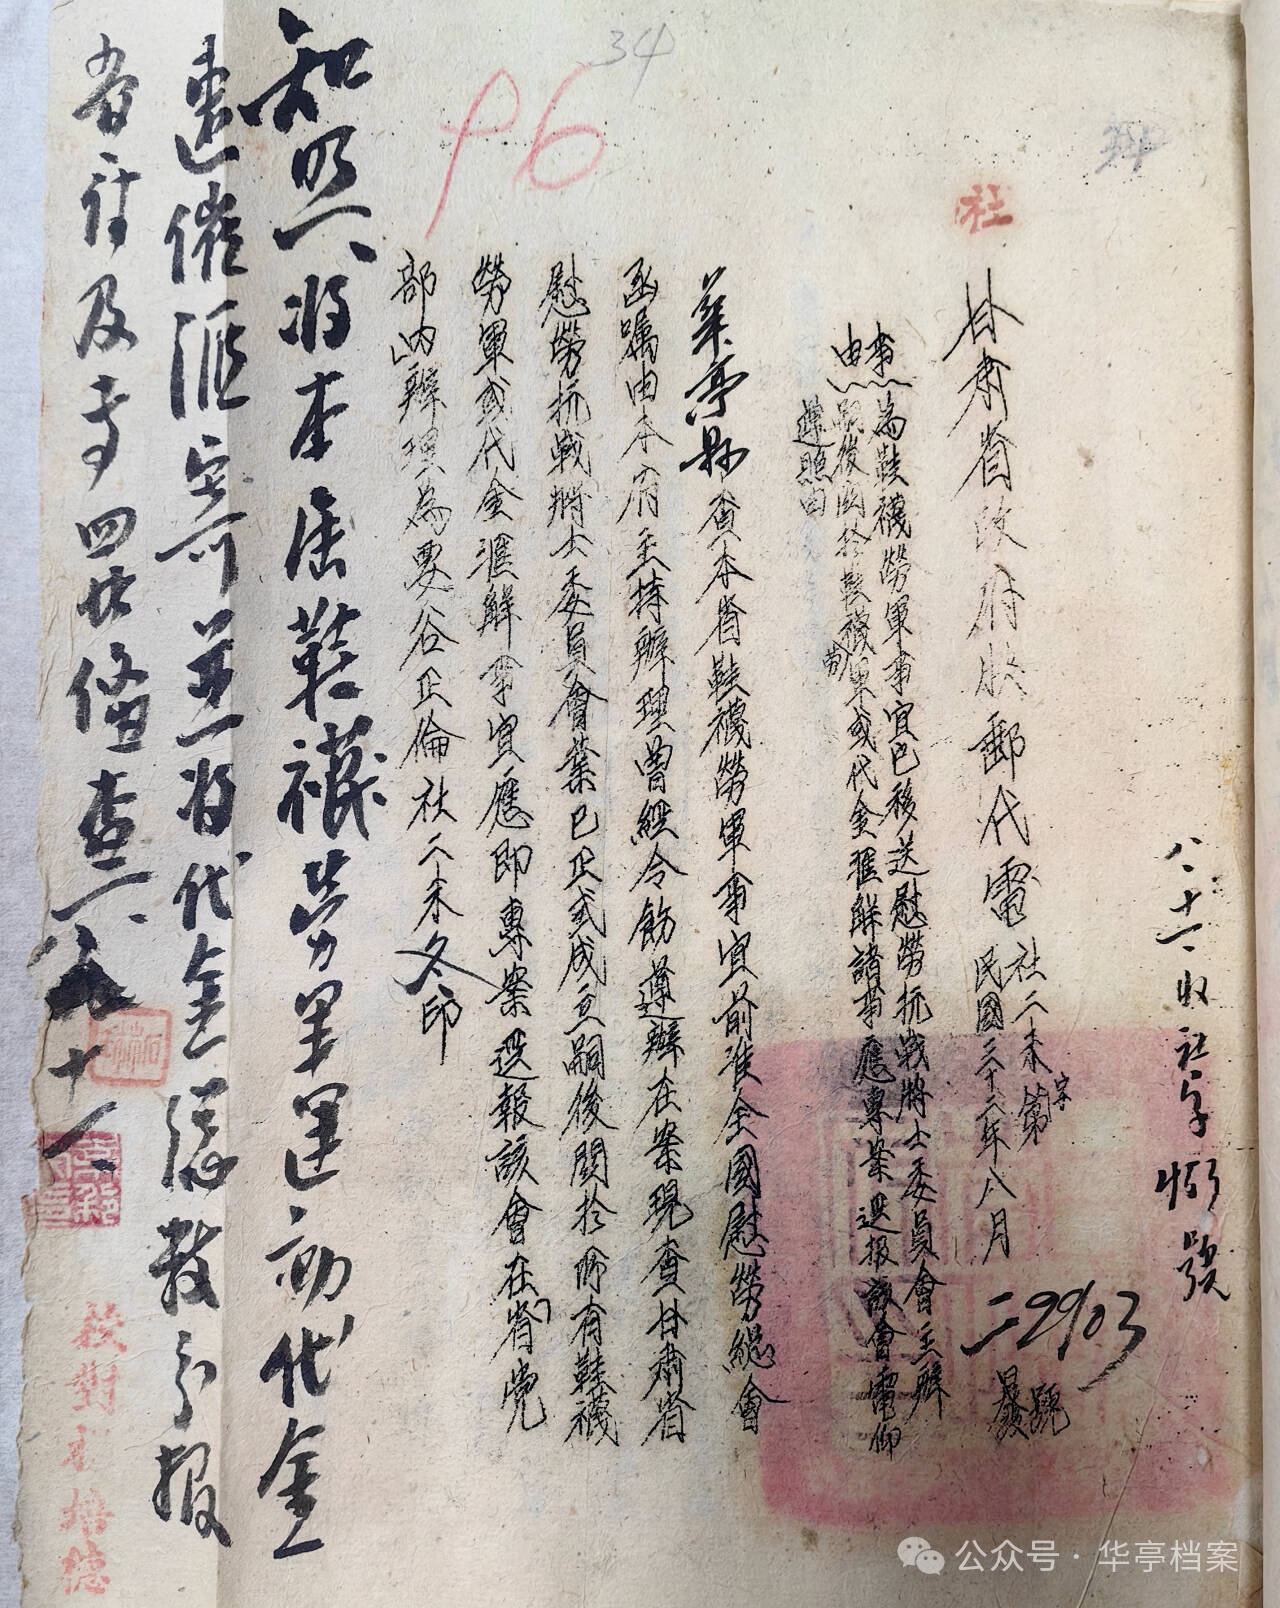 34
96
社
八、十一收社字453號
甘肅省政府快郵代電
社二未字第
民國三十二年八月
二2903
號
日發
事由
為鞋襪勞軍事宜已移送慰勞抗戰將士委員會主辦
嗣後關於鞋襪勞軍或代金匯解諸事應專案逕报該會電仰
遵照由
華亭縣查本省鞋襪勞軍事宜前准全國慰勞總會
函囑由本府主持辦理曾經令飭遵辦在案現查甘肅省
慰勞抗戰將士委員會業已正式成立嗣後關於所有鞋襪
勞軍或代金滙解事宜應即專案逕報該會在省党
部內辦理為要谷正倫社二未冬印
知照將本屆鞋襪劳军運动代金
速催滙寄並将代金總数分报
省府及 四 備查 八、十一
校對 培德
公众号·华亭档案